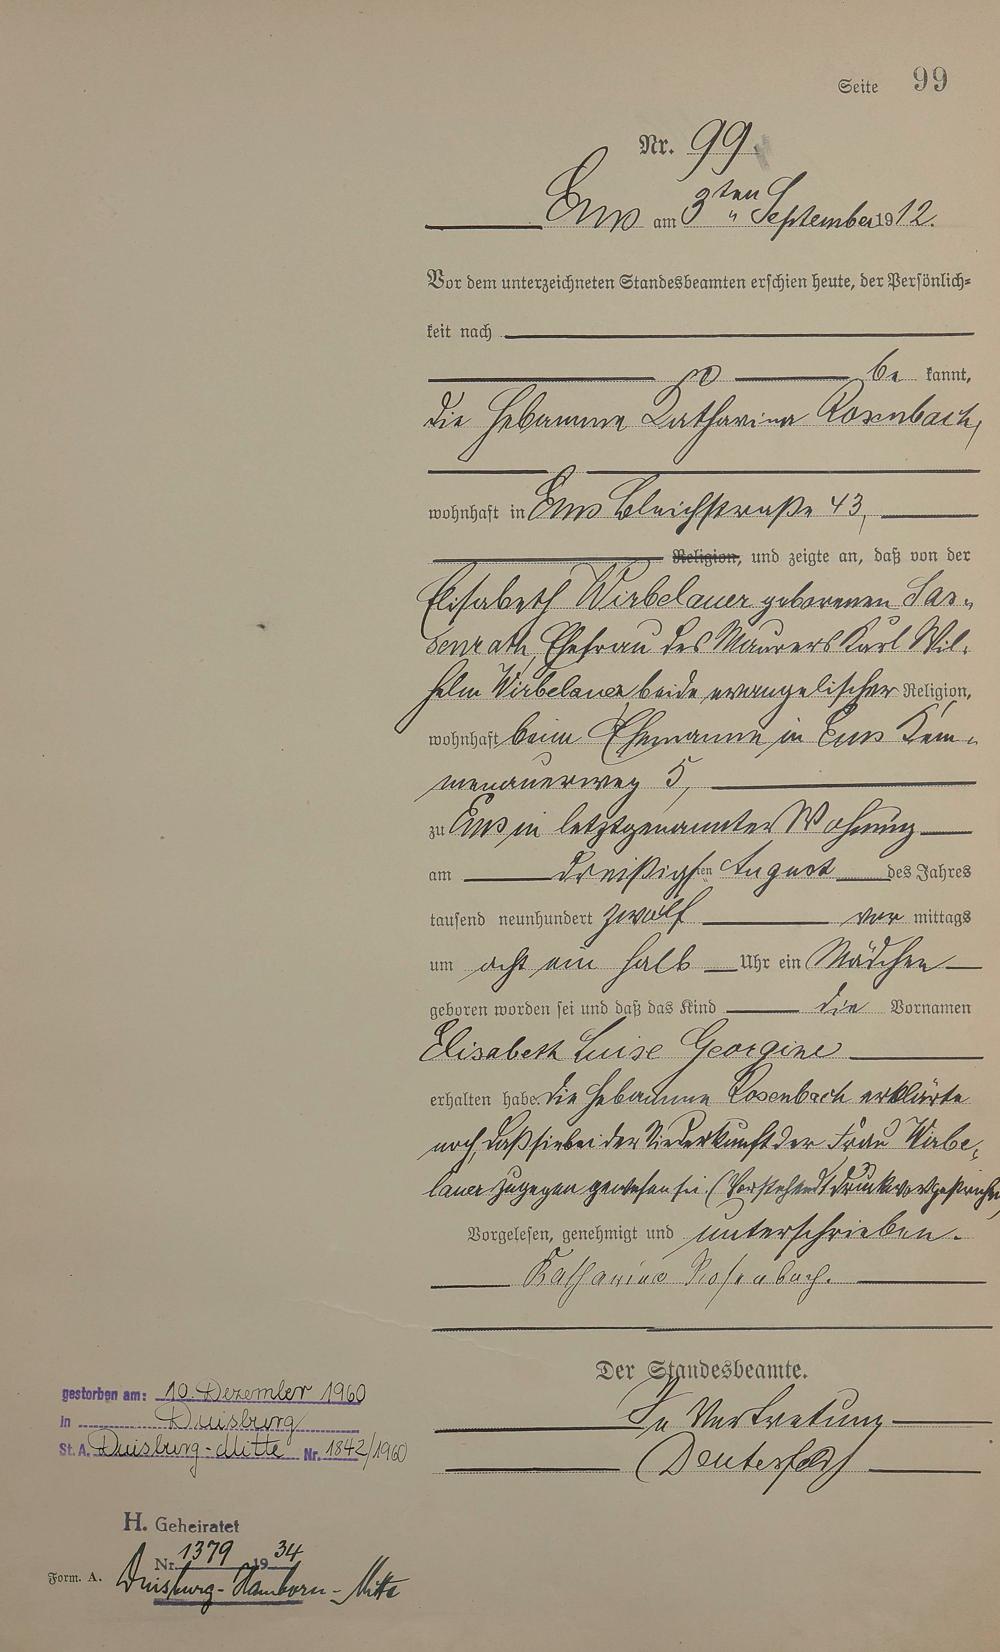 Seite 99
Nr. 99.
Ems am 3ten September 1912.
Vor dem unterzeichneten Standesbeamten erschien heute, der Persönlich=
keit nach
be kannt,
die Hebamme Katharina Rosenbach,
wohnhaft in Ems Bleichstraße 43,
Religion, und zeigte an, daß von der
Elisabeth Wirbelauer geborenen Sas-
senrath, Ehefrau des Maurers Karl Wil-
helm Wirbelauer, beide evangelischer Religion,
wohnhaft beim Ehemanne in Ems Kem-
menauerweg 5,
zu Ems in letztgenannter Wohnung
am dreißigsten August des Jahres
tausend neunhundert zwölf vor mittags
um acht ein halb Uhr ein Mädchen
geboren worden sei und daß das Kind die Vornamen
Elisabeth Luise Georgine
erhalten habe. Die Hebamme Rosenbach erklärte
noch, daß sie bei der Niederkunft der Frau Wirbe-
lauer zugegen gewesen sei. (Vorstehend 1 Druckwort gestrichen)
Vorgelesen, genehmigt und unterschrieben.
Katharina Rosenbach.
Der Standesbeamte.
In Vertretung
gestorben am: 10. Dezember 1960
in Duisburg
St. A. Duisburg-Mitte Nr. 1842/1960
H. Geheiratet
Nr. 1379 1934
Duisburg-Hamborn-Mitte
Form. A.